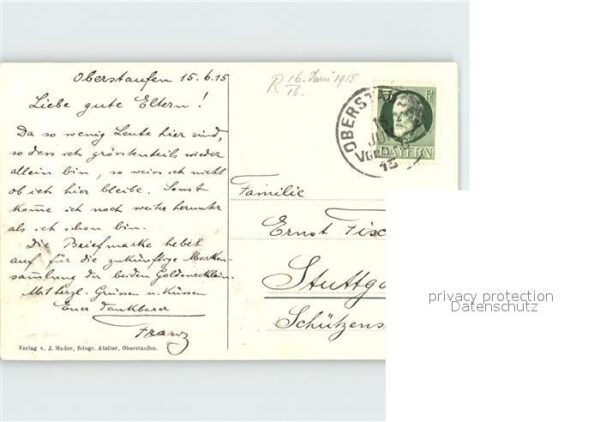 Oberstaufen 15.6.15
Liebe gute Eltern!
Da so wenig Leute hier sind,
so dass ich grösstenteils wieder
allein bin, so weiss ich nicht
ob ich hier bleibe. Sonst
komme ich noch weiter herunter
als ich schon bin.
Die Briefmarke hebet
auf für die zukünftige Marken
sammlung der beiden
Mit herzl. Grüssen u. Küssen
Euer dankbarer
Franz
Verlag v. J. Mader, fotogr. Atelier, Oberstaufen.
R 16. Juni 1915
16.
OBERST
JU
BAYERN
15
Familie
Ernst Fisc
Stuttg
Schützens
privacy protection
Datenschutz